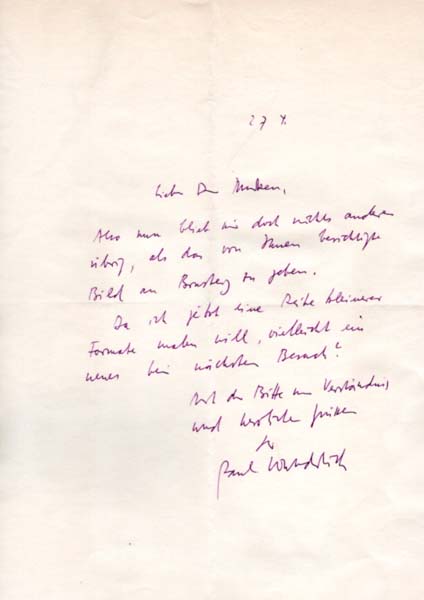 27 4.
Also nun blieb mir doch nichts anderes
übrig, als das von Ihnen besichtigte
Bild an Brusberg zu geben.
Da ich jetzt eine Reihe kleinerer
Formate malen will, vielleicht ein
neues beim nächsten Besuch?
Mit der Bitte um Verständnis
und herzlichen Grüßen
Ihr
Paul Wunderlich